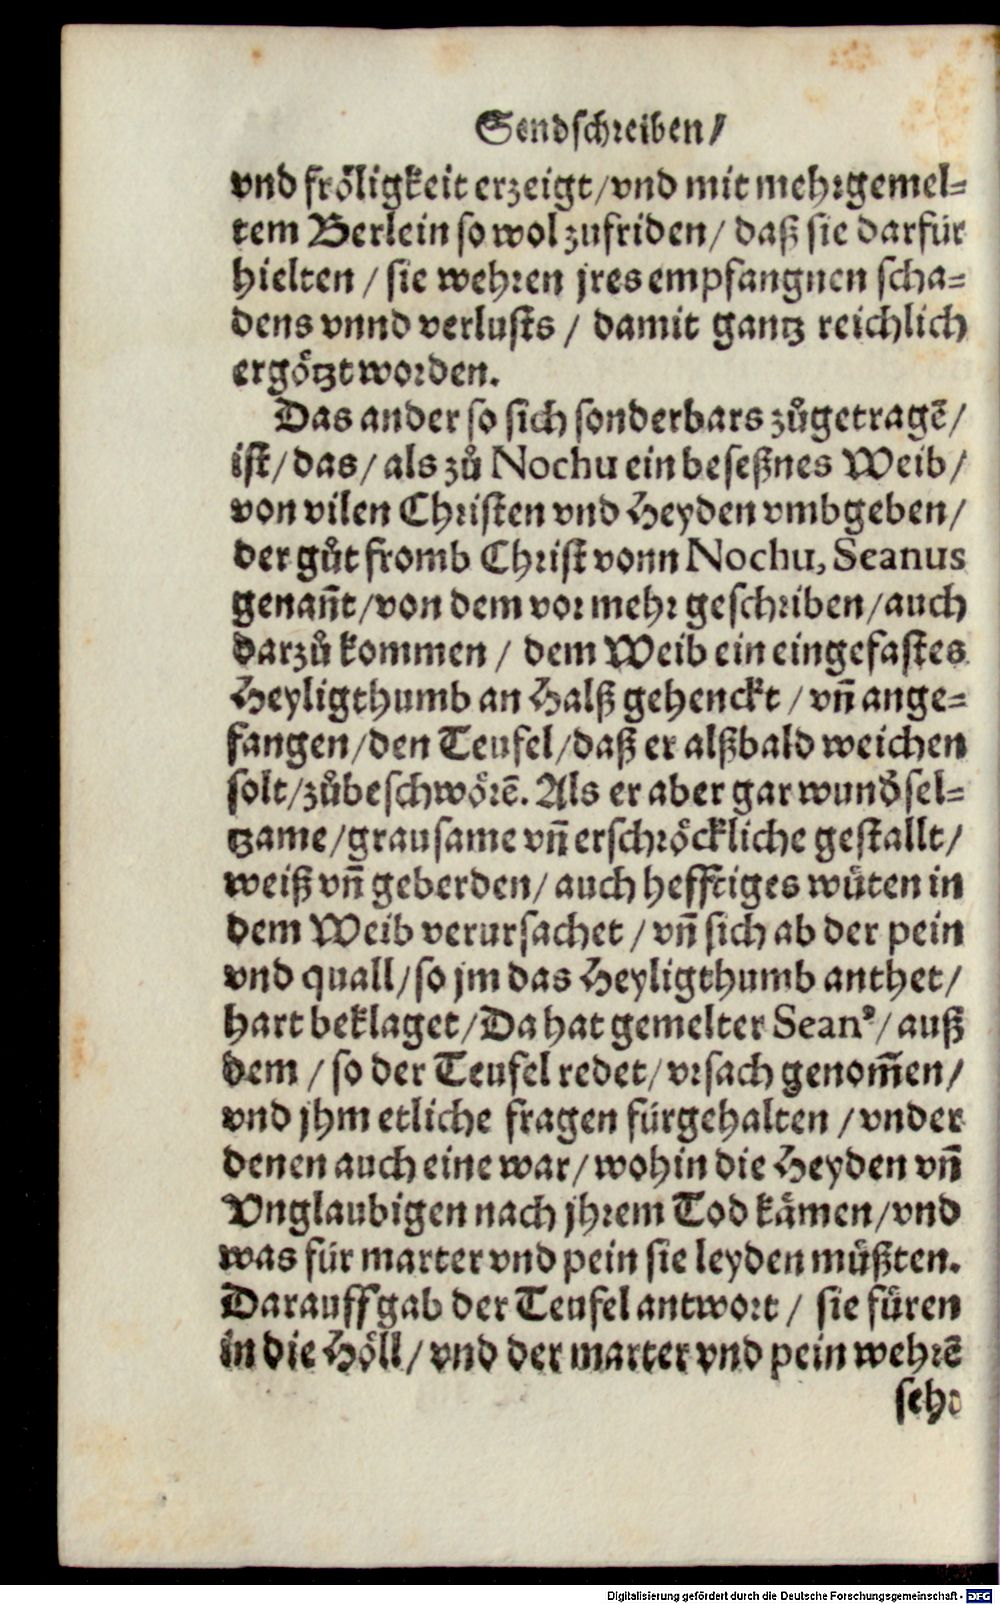 Sendschreiben/
vnd fröligkeit erzeigt/vnd mit mehrgemel-
tem Berlein so wol zufriden/ daß sie darfür
hielten / sie wehren jres empfangnen scha-
dens vnnd verlusts / damit gantz reichlich
ergötzt worden.
Das ander so sich sonderbars zůgetragē/
ist/das/als zů Nochu ein beseßnes Weib/
von vilen Christen vnd Heyden vmbgeben/
der gůt fromb Christ vonn Nochu, Seanus
genañt/von dem vor mehr geschriben/auch
darzů kommen / dem Weib ein eingefastes
Heyligthumb an Halß gehenckt / vñ ange-
fangen/den Teufel/daß er alßbald weichen
solt/zůbeschwörē. Als er aber gar wunđsel-
tzame/grausame vñ erschröckliche gestallt/
weiß vñ geberden/ auch hefftiges wüten in
dem Weib verursachet / vñ sich ab der pein
vnd quall/so jm das Heyligthumb anthet/
hart beklaget/Da hat gemelter Seanꝰ/ auß
dem / so der Teufel redet/ vrsach genom̃en/
vnd jhm etliche fragen fürgehalten /vnder
denen auch eine war/ wohin die Heyden vñ
Vnglaubigen nach jhrem Tod kämen/vnd
was für marter vnd pein sie leyden müßten.
Darauff gab der Teufel antwort / sie füren
in die Höll/ vnd der marter vnd pein wehrē
sehr
Digitalisierung gefördert durch die Deutsche Forschungsgemeinschaft - DFG